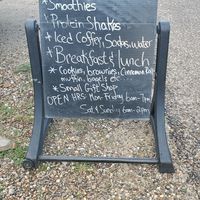 * Smoothies
* Protein Shakes
* Iced Coffee, Sodas, water
* Breakfast & lunch
* Cookies, brownies, Cinnamon Roll
muffin, bagels etc
* Small Gift Shop
OPEN HRS Mon-Friday 6am-7pm
Sat & Sunday 6am-2pm